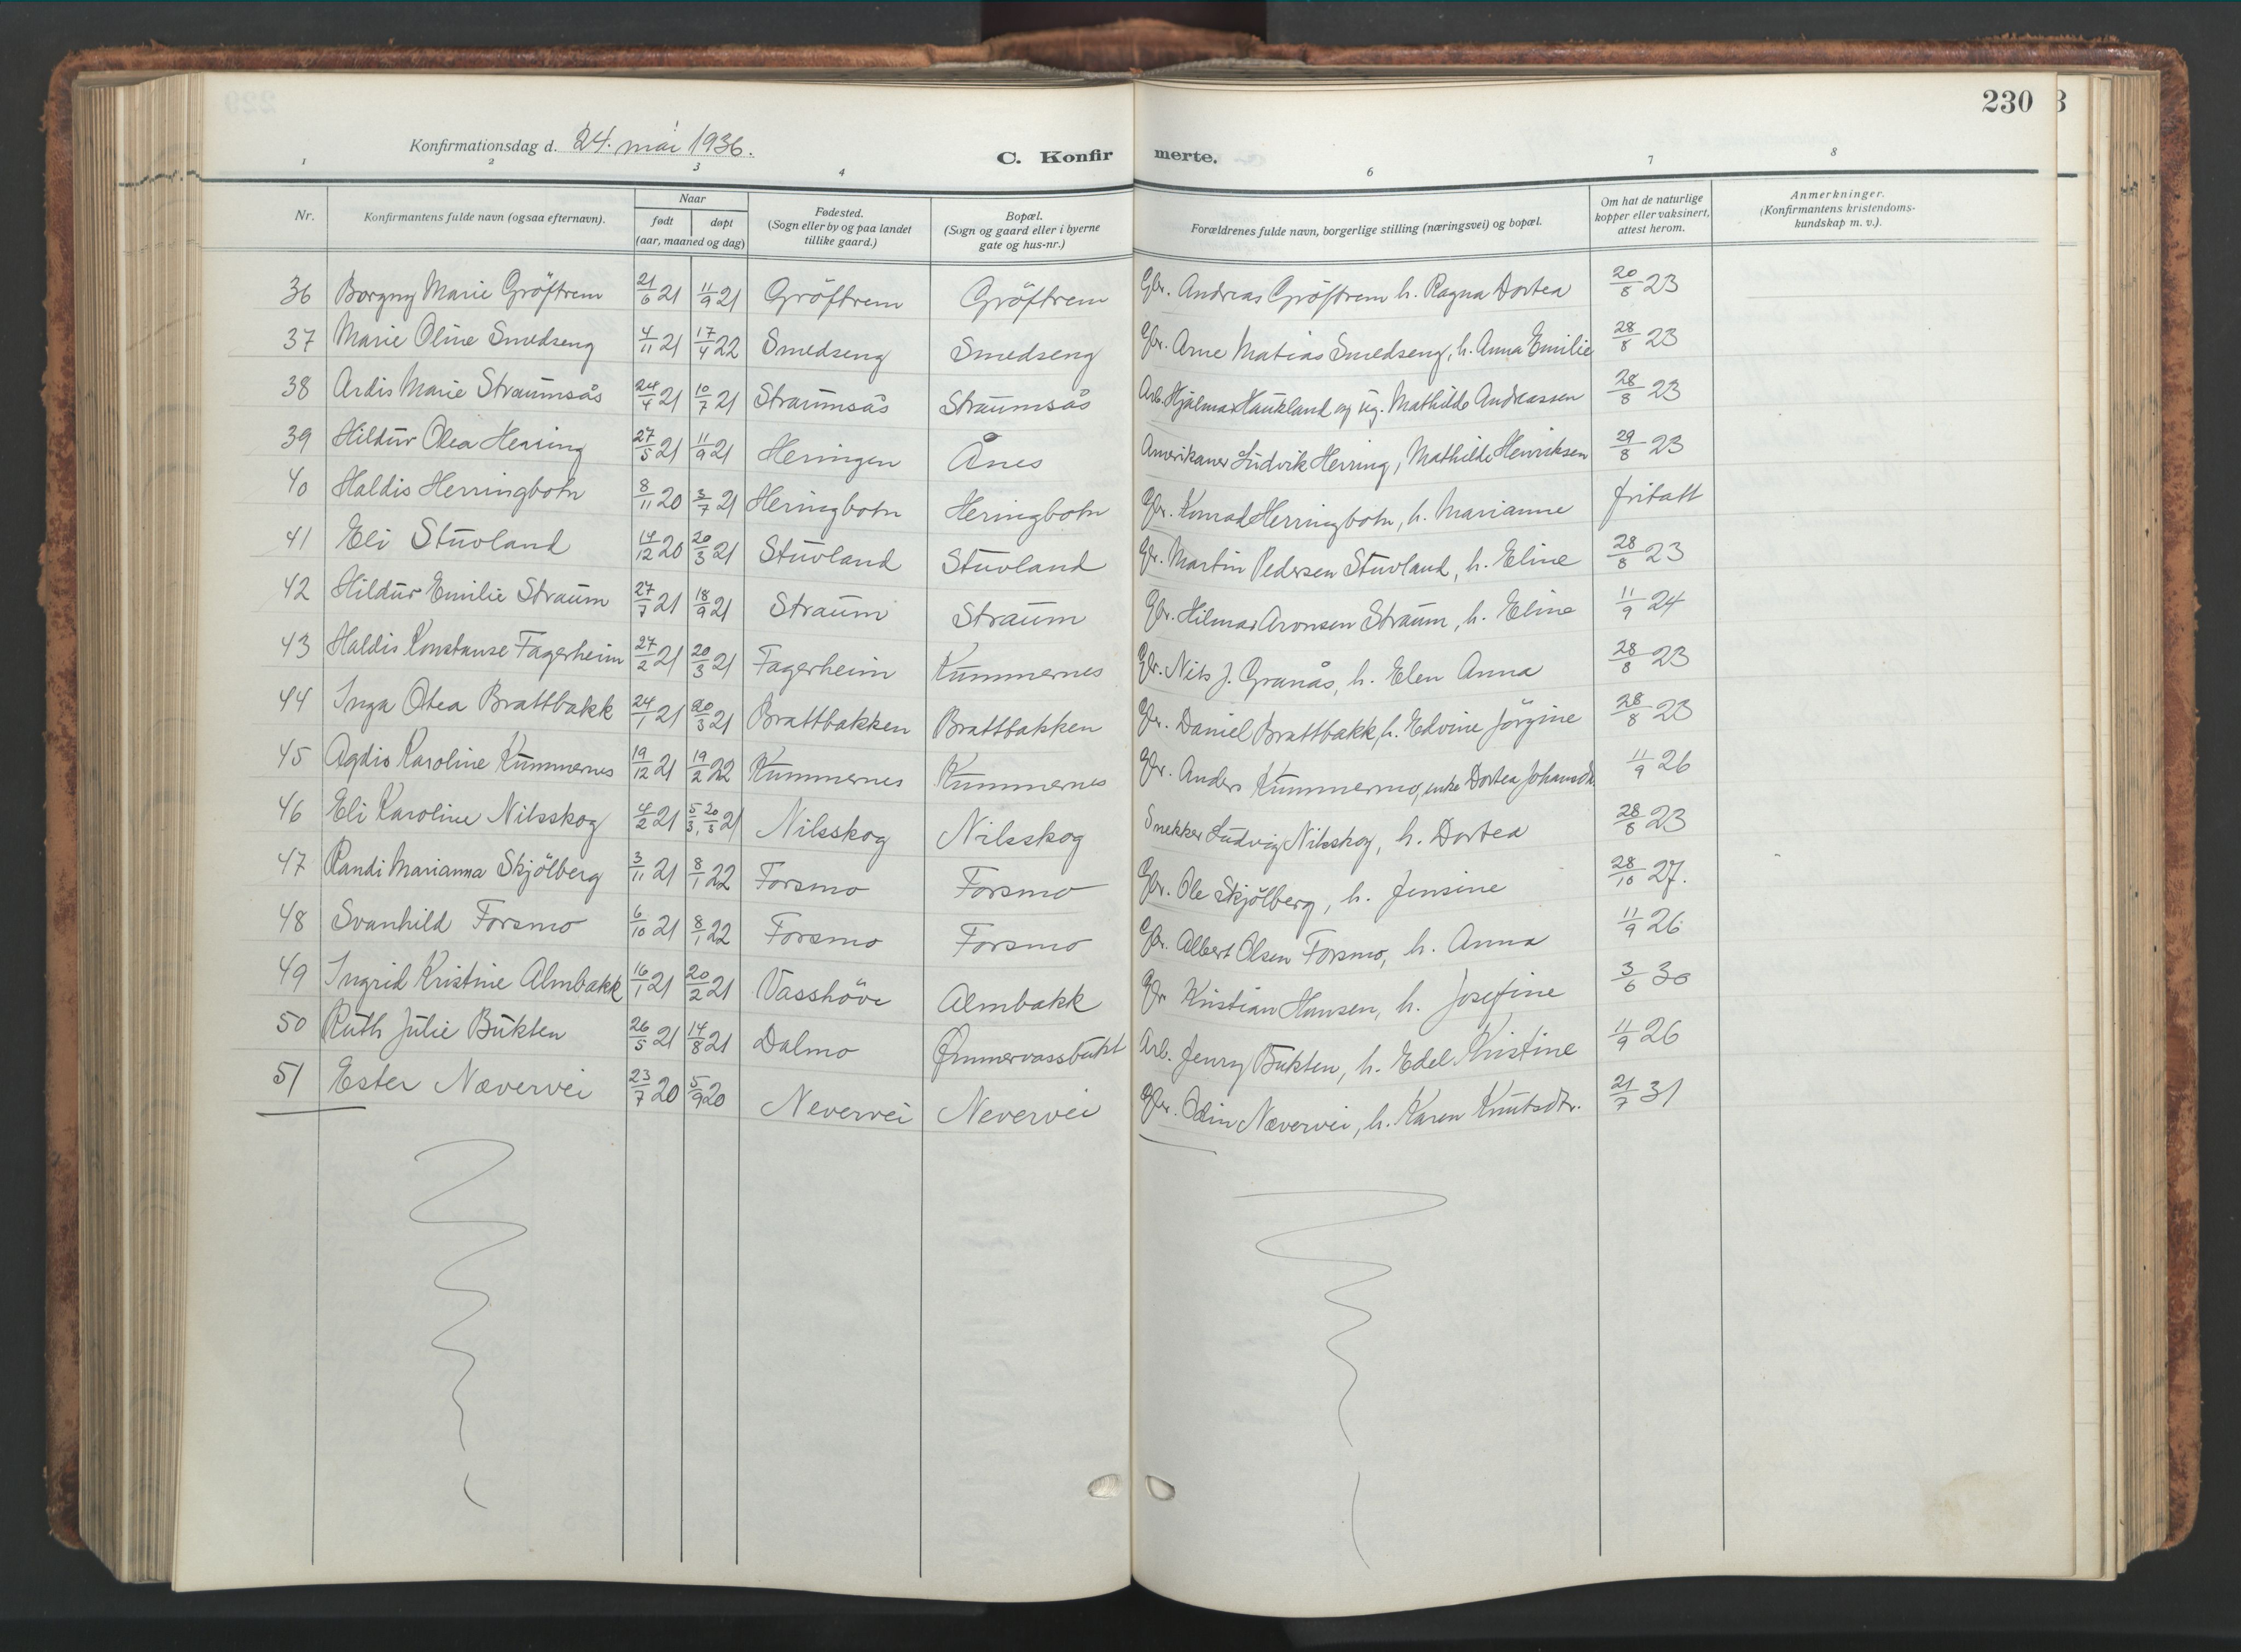 230
Konfirmationsdag d. 24. mai 1936.
C. Konfirmerte.
1 2 3 4 6 7 8
Nr. | Konfirmantens fulde navn (ogsaa efternavn). | Naar født døpt (aar, maaned og dag) | Fødested. (Sogn eller by og paa landet tillike gaard.) | Bopæl. (Sogn og gaard eller i byerne gate og hus-nr.) | Forældrenes fulde navn, borgerlige stilling (næringsvei) og bopæl. | Om hat de naturlige kopper eller vaksinert, attest herom. | Anmerkninger. (Konfirmantens kristendoms-kundskap m. v.).
36 Borgny Marie Gröftrem 21/6 21 11/9 21 Gröftrem Gröftrem Gbr. Andreas Gröftrem h. Ragna Dortea 20/8 23
37 Marie Oline Smedseng 4/11 21 17/4 22 Smedseng Smedseng Gbr. Arne Matias Smedseng, h. Anna Emilie 28/8 23
38 Ardis Marie Straumsås 24/4 21 10/7 21 Straumsås Straumsås Arb. Hjalmar Haukland og ug. Mathilde Andreassen 28/8 23
39 Hildur Olea Herring 27/5 21 11/9 21 Heringen Ånes Amerikaner Ludvik Herring, Mathilde Henriksen 29/8 23
40 Haldis Herringbotn 8/11 20 3/7 21 Heringbotn Heringbotn Gbr. Konrad Herringbotn, h. Marianne fritatt
41 Eli Stuvland 14/12 20 20/3 21 Stuvland Stuvland Gbr. Martin Pedersen Stuvland, h. Eline 28/8 23
42 Hildur Emilie Straum 27/7 21 18/9 21 Straum Straum Gbr. Hilmar Aronsen Straum, h. Eline 11/9 24
43 Haldis Konstanse Fagerheim 27/2 21 20/3 21 Fagerheim Kummernes Gbr. Nils J. Granås, h. Elen Anna 28/8 23
44 Inga Otea Brattbakk 24/1 21 20/3 21 Brattbakken Brattbakken Gbr. Daniel Brattbakk, h. Edvine Jörgine 28/8 23
45 Agdis Karoline Kummernes 19/12 21 19/2 22 Kummernes Kummernes Gbr. Anders Kummernes, enke Dortea Johansdt. 11/9 26
46 Eli Karoline Nilsskog 4/2 21 5/3, 20/3 21 Nilsskog Nilsskog Snekker Ludvig Nilsskog, h. Dortea 28/8 23
47 Randi Marianna Skjölberg 3/11 21 8/1 22 Forsmo Forsmo Gbr. Ole Skjölberg, h. Jensine 28/10 27.
48 Svanhild Forsmo 6/10 21 8/1 22 Forsmo Forsmo Gbr. Albert Olsen Forsmo, h. Anna 11/9 26
49 Ingrid Kristine Almbakk 16/1 21 20/2 21 Vasshöve Almbakk Gbr Kristian Hansen, h. Josefine 3/6 30
50 Ruth Julie Bukten 26/5 21 14/8 21 Dalmo Ømmervassbukt Arb. Jenry Bukten, h. Edel Kristine 11/9 26
51 Ester Nævervei 23/7 20 5/9 20 Nevervei Nevervei Gbr. Odin Nævervei, h. Karen Knutsdtr. 21/7 31